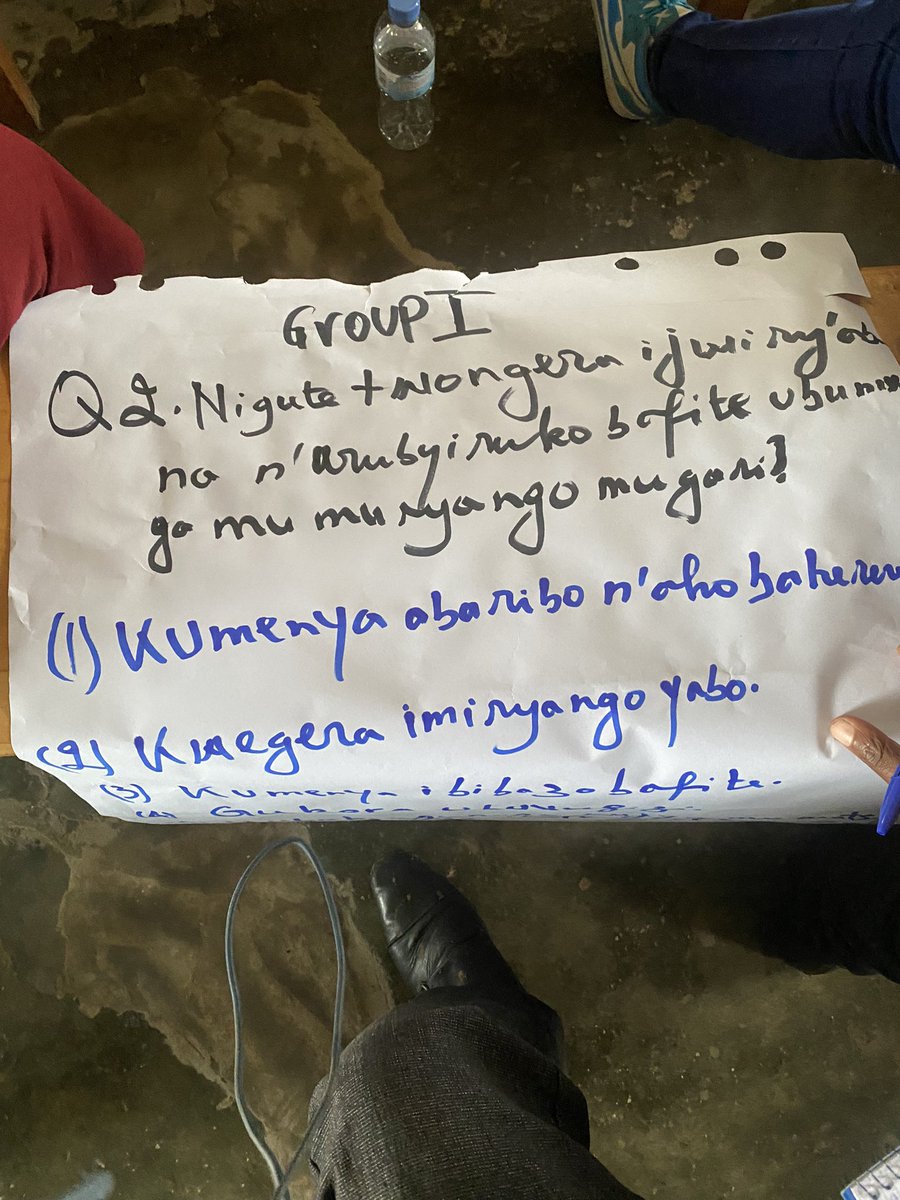 GROUP I
Q2. Nigute twongera ijwi ry'aba
na n'urubyiruko bafite ubumu
ga mu muryango mugari?
(1) Kumenya abaribo n'aho baherere
(2) Kwegera imiryango yabo.
(3) Kumenya ibibazo bafite.
(4) Guhora